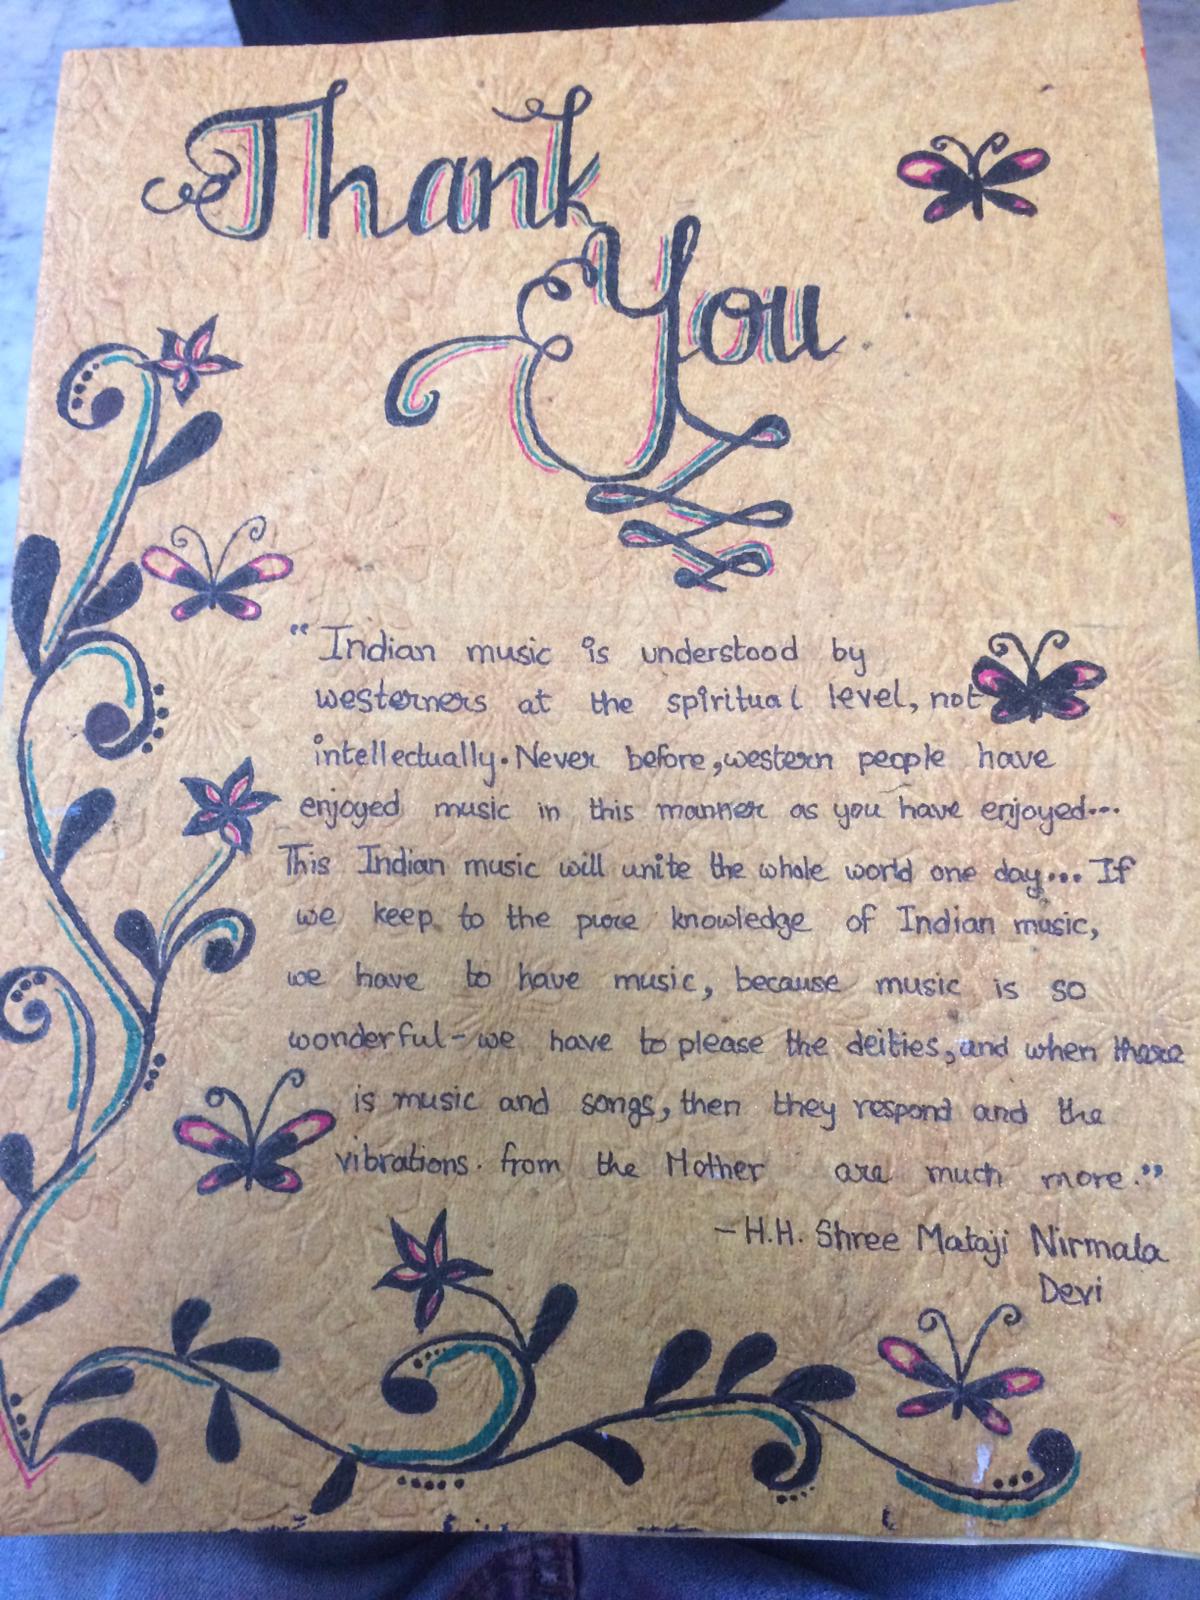 Thank
You
" Indian music is understood by
westerners at the spiritual level, not
intellectually. Never before, western people have
enjoyed music in this manner as you have enjoyed...
This Indian music will unite the whole world one day... If
we keep to the pure knowledge of Indian music,
we have to have music, because music is so
wonderful - we have to please the deities, and when there
is music and songs, then they respond and the
vibrations. from the Mother are much more."
- H.H. Shree Mataji Nirmala
Devi